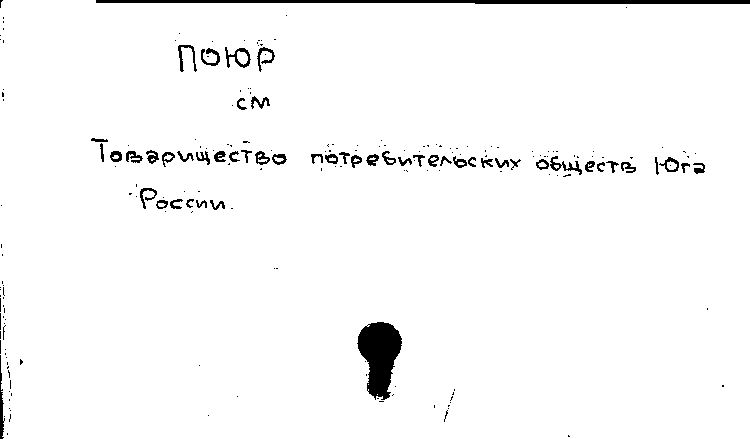 ПОЮР
см
Товарищество потребительских обществ Юга
России.